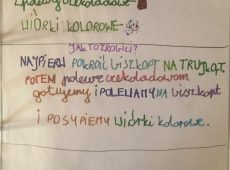 polewy czekoladowe
WIÓRKI KOLOROWE-
JAK TO ZROBIĆ?
NAJPIERW POKROIĆ BISZKOPT NA TRÓJKĄT.
POTEM polewe czekoladowom
gotujemy i POLEWAMY NA biszkopt
i POSYPIEMY wiórki kolorowe.